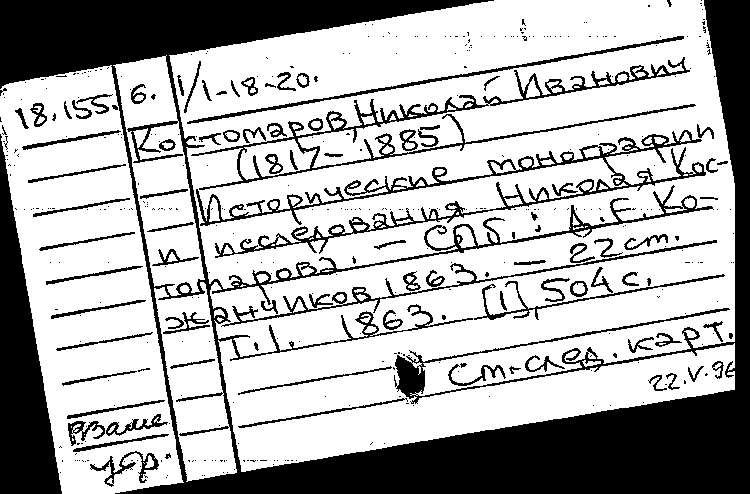 18.155. 6. 1/1-18-20.
Костомаров, Николай Иванович
(1817-1885)
Исторические монографии
и исследования Николая Кос-
томарова. — СПб.: Д.Е. Ко-
жанчиков, 1863. — 22 cm.
Т.1. 1863. [1], 504 с.
См. след. карт.
22.V.96